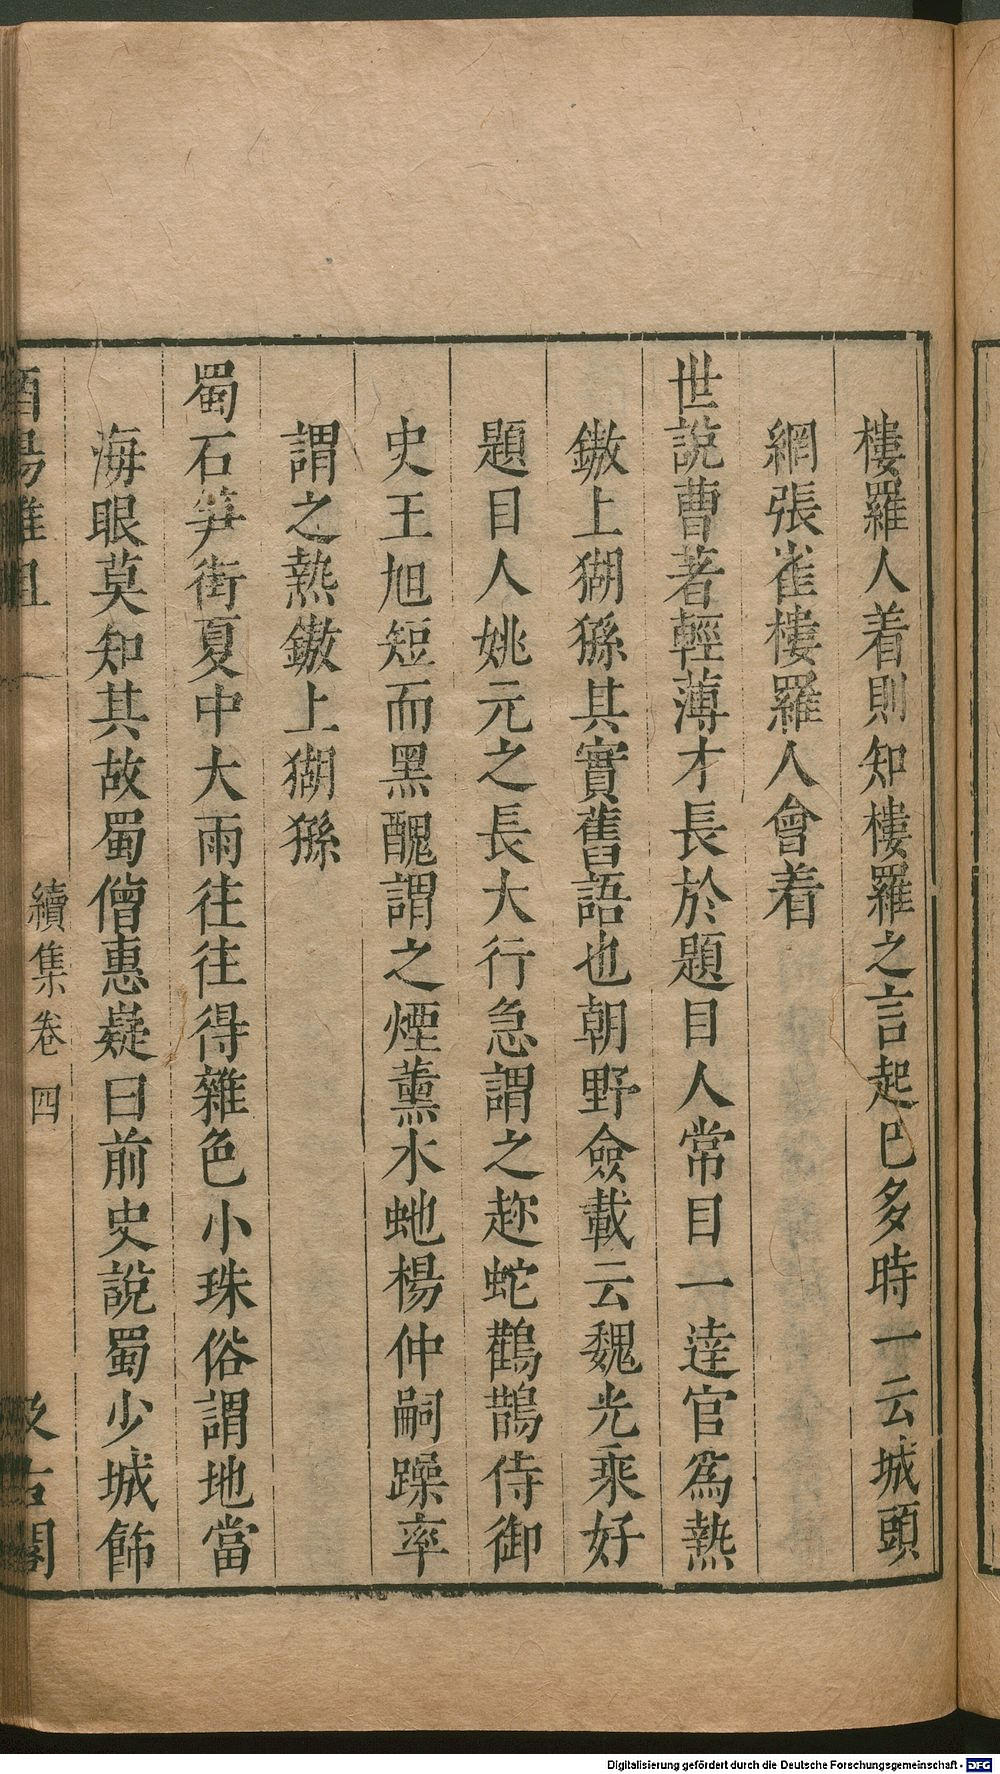 樓羅人着則知樓羅之言起巳多時一云城頭
網張雀樓羅人會着
世說曹著輕薄才長於題目人常目一逹官爲熱
鏾上猢猻其實舊語也朝野僉載云魏光乘好
題目人姚元之長大行急謂之趂蛇鸛鵲侍御
史王旭短而黑醜謂之煙薰水虵楊仲嗣躁率
謂之熱鏾上猢猻
蜀石笋街夏中大雨往往得雜色小珠俗謂地當
海眼莫知其故蜀僧惠嶷曰前史說蜀少城餙
酉陽雜俎
續集卷四
汲古閣
Digitalisierung gefördert durch die Deutsche Forschungsgemeinschaft - DFG